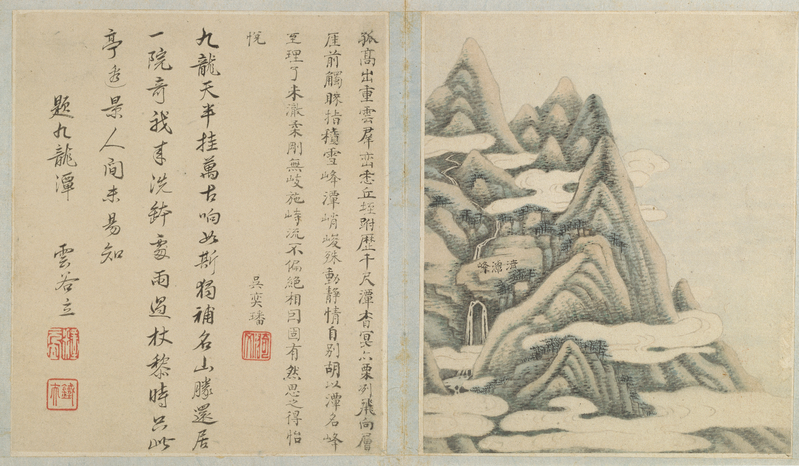 孤高出重雲羣巒悉丘垤附歷千尺潭杳冥六栗冽飛向層
厓前觸皆積雪峰潭峭峻殊動靜情自別胡以潭名峰
至理了未澈柔剛無岐施峙流不偏絕相囘固有然思之得怡
悅
吳奕璠
九龍天半挂萬古响如斯獨補名山勝還居
一院奇我來洗鉢處雨過杖藜時只此
亭邊景人間未易知
題九龍潭 雲谷立